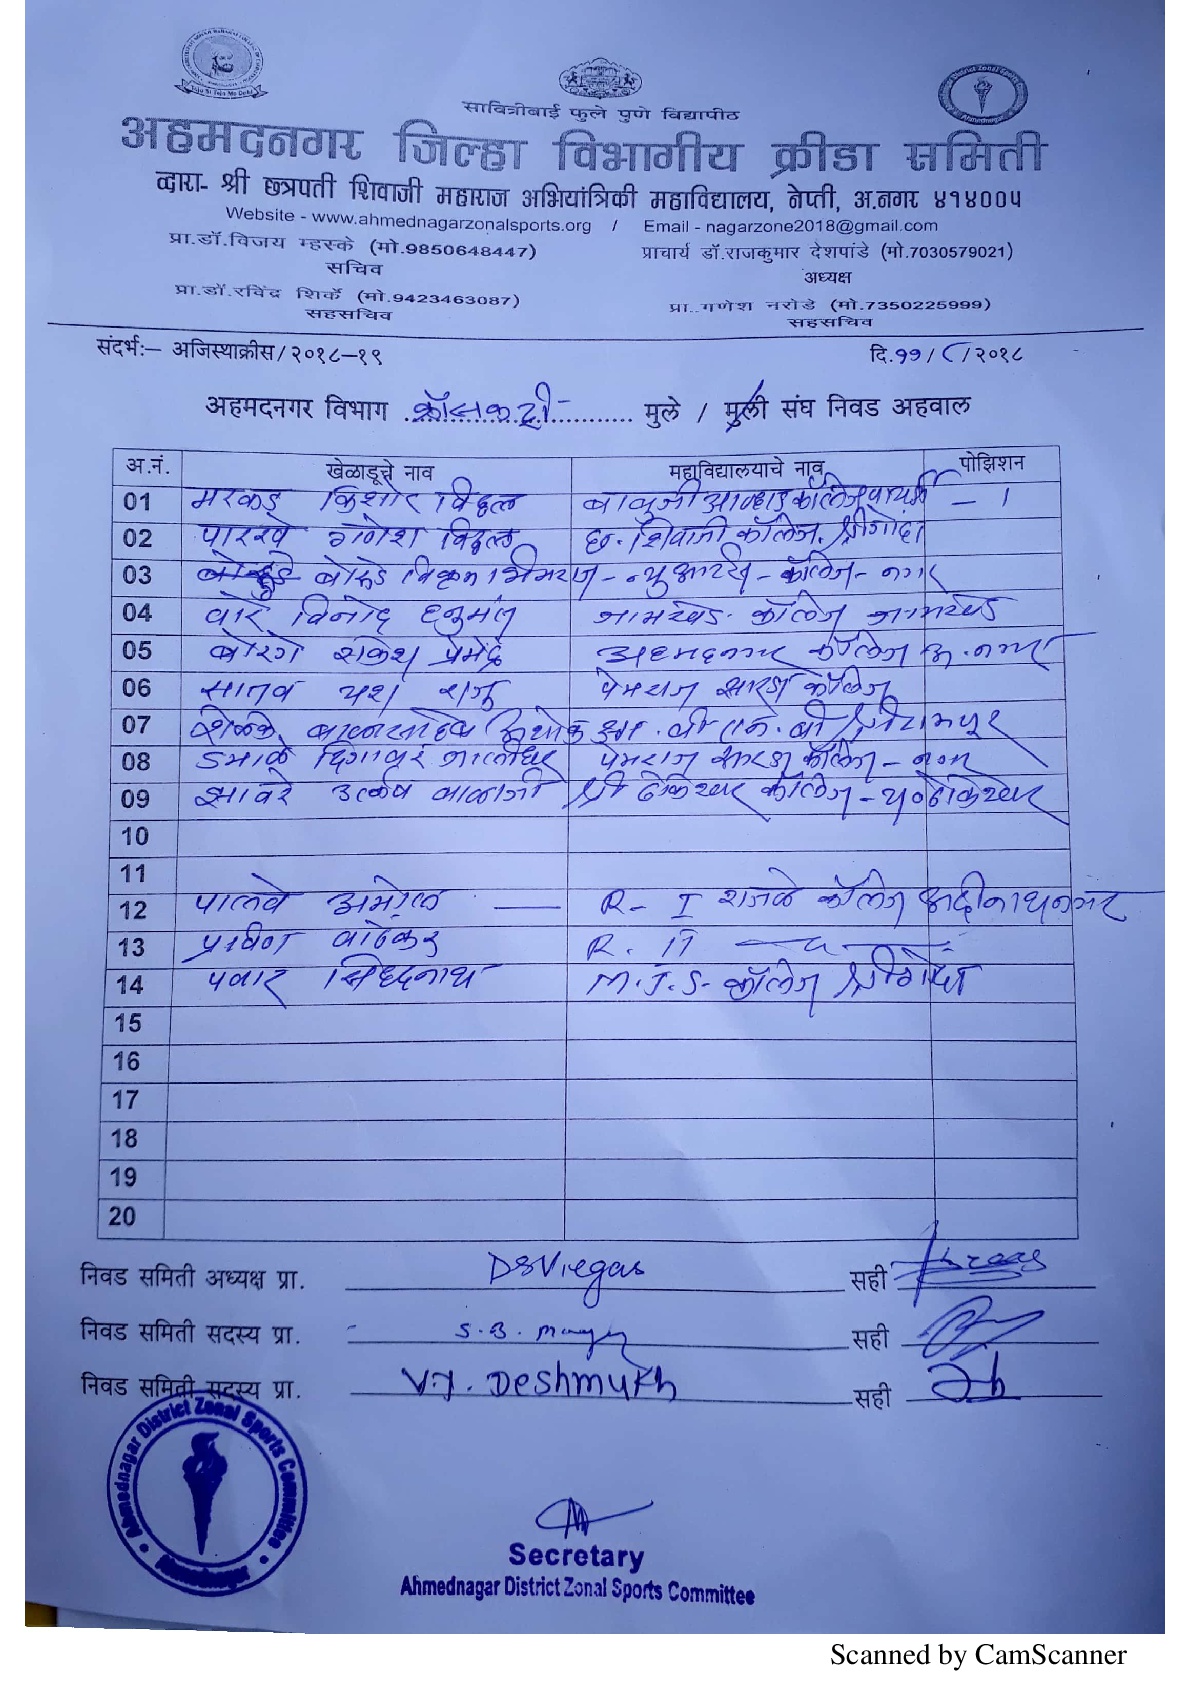 सावित्रीबाई फुले पुणे विद्यापीठ
अहमदनगर जिल्हा विभागीय क्रीडा समिती
व्दारा- श्री छत्रपती शिवाजी महाराज अभियांत्रिकी महाविद्यालय, नेप्ती, अ.नगर ४१४००५
Website - www.ahmednagarzonalsports.org / Email - nagarzone2018@gmail.com
प्रा.डॉ.विजय म्हस्के (मो.9850648447) प्राचार्य डॉ.राजकुमार देशपांडे (मो.7030579021)
सचिव अध्यक्ष
प्रा.डॉ.रविंद्र शिर्के (मो.9423463087) प्रा..गणेश नरोडे (मो.7350225999)
सहसचिव सहसचिव
संदर्भ:– अजिस्थाक्रीस/२०१८–१९ दि.११/८/२०१८
अहमदनगर विभाग क्रॉसकंट्री मुले / मुली संघ निवड अहवाल
अ.नं. खेळाडूचे नाव महाविद्यालयाचे नाव पोझिशन
01 मरकड किशोर विठ्ठल बाबुजी आव्हाड कॉलेज पाथर्डी – 1
02 पारखे गणेश विठ्ठल छ. शिवाजी कॉलेज. श्रीगोंदा
03 बोरुडे विक्रम भिमराज - न्यु आर्टस - कॉलेज - नगर
04 वारे विनोद हनुमंत जामखेड कॉलेज जामखेड
05 बोरगे राकेश अहमदनगर कॉलेज अ.नगर
06 सातव यश राजु पेमराज सारडा कॉलेज
07 शेळके बाळासाहेब अशोक आर. बी. एन. बी श्रीरामपूर
08 डमाळे दिगांबर जालींधर पेमराज सारडा कॉलेज - नगर
09 झावरे उत्कर्ष बाळाजी श्री ढोकेश्वर कॉलेज -
10
11
12 पालवे अमोल — R- I राजळे कॉलेज आदीनाथनगर
13 प्रविण R. II
14 पवार सिध्दनाथ M.J.S- कॉलेज श्रीगोंदा
15
16
17
18
19
20
निवड समिती अध्यक्ष प्रा. DSViegas सही
निवड समिती सदस्य प्रा. S. B. सही
निवड समिती सदस्य प्रा. V.J. Deshmukh सही
Ahmednagar District Zonal Sports Committee
Ahmednagar
Secretary
Ahmednagar District Zonal Sports Committee
Scanned by CamScanner